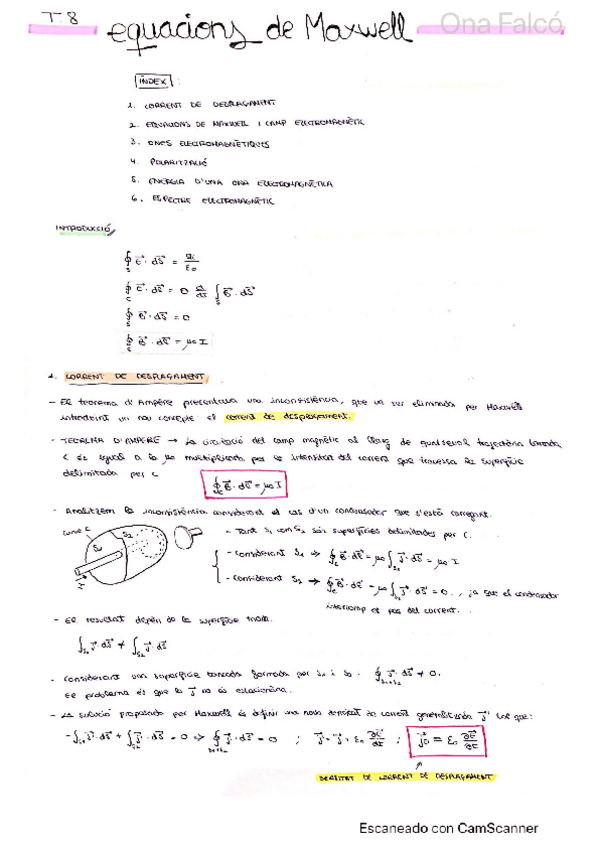 T.8
equacions de Maxwell
Ona Falcó
ÍNDEX:
1. CORRENT DE DESPLAÇAMENT
2. EQUACIONS DE MAXWELL I CAMP ELECTROMAGNÈTIC
3. ONES ELECTROMAGNÈTIQUES
4. POLARITZACIÓ
5. ENERGIA D'UNA ONA ELECTROMAGNÈTICA
6. ESPECTRE ELECTROMAGNÈTIC
INTRODUCCIÓ
∮_S E⃗ · dS⃗ = q_i/ε₀
∮_C E⃗ · dℓ⃗ = 0 d/dt ∫_S B⃗ · dS⃗
∮_S B⃗ · dS⃗ = 0
∮_C B⃗ · dℓ⃗ = μ₀ I
1. CORRENT DE DESPLAÇAMENT
- El teorema d'Ampère presentava una inconsistència, que va ser eliminada per Maxwell
introduint un nou concepte: el corrent de desplaçament.
- TEOREMA D'AMPÈRE → la circulació del camp magnètic al llarg de qualsevol trajectòria tancada
C és igual a la μ₀ multiplicada per la intensitat del corrent que travessa la superfície
delimitada per C
∮_C B⃗ · dℓ⃗ = μ₀ I
- Analitzem la inconsistència considerant el cas d'un condensador que s'està carregant.
Curva C
S₁ S₂
I
- Tant S₁ com S₂ són superfícies delimitades per C.
- Considerant S₁ ⇒ ∮_C B⃗ · dℓ⃗ = μ₀ ∫_S₁ j⃗ · dS⃗ = μ₀ I
- Considerant S₂ → ∮_C B⃗ · dℓ⃗ = μ₀ ∫_S₂ j⃗ · dS⃗ = 0, ja que el condensador
interromp el pas del corrent.
- El resultat depèn de la superfície triada.
∫_S₁ j⃗ · dS⃗ ≠ ∫_S₂ j⃗ · dS⃗
- Considerant una superfície tancada formada per S₁ i S₂: ∮_S₁+S₂ j⃗ · dS⃗ ≠ 0.
El problema és que la j⃗ no és estacionària.
- La solució proposada per Maxwell és definir una nova densitat de corrent generalitzada j⃗' tal que:
-∫_S₁ j⃗' · dS⃗ + ∫_S₂ j⃗' · dS⃗ = 0 ⇒ ∮_S₁+S₂ j⃗' · dS⃗ = 0 ; j⃗' = j⃗ + ε₀ ∂E⃗/∂t ; j⃗_D = ε₀ ∂E⃗/∂t
DENSITAT DE CORRENT DE DESPLAÇAMENT
Escaneado con CamScanner